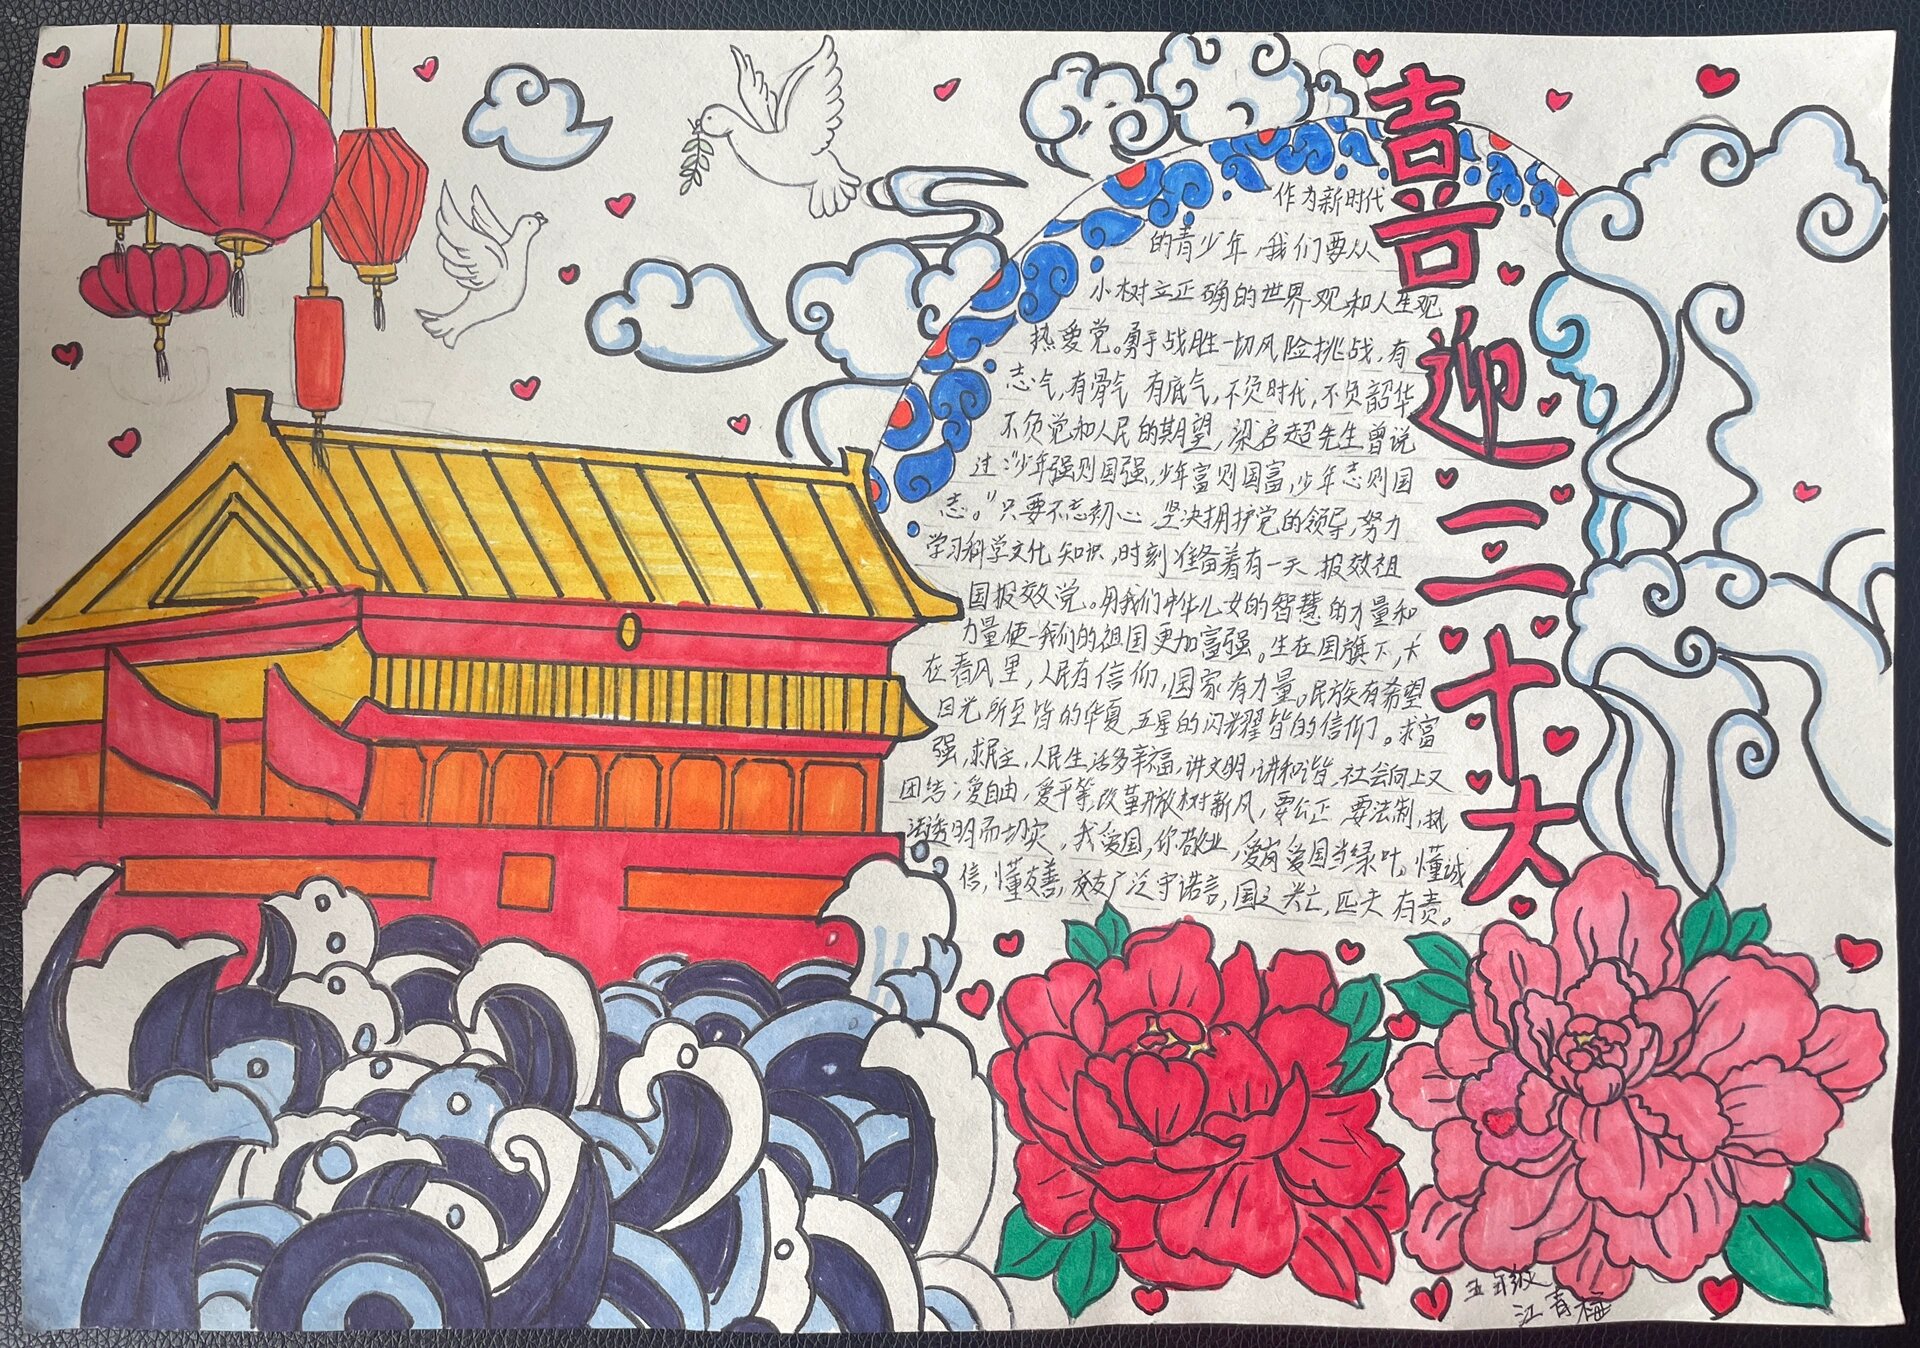 喜迎二十大
作为新时代
的青少年,我们要从
小树立正确的世界观和人生观
热爱党。勇于战胜一切风险挑战,有
志气,有骨气 有底气,不负时代,不负韶华
不负党和人民的期望,梁启超先生曾说
过:“少年强则国强,少年富则国富,少年志则国
志。”只要不忘初心 坚决拥护党的领导,努力
学习科学文化知识,时刻准备着有一天 报效祖
国报效党。用我们中华儿女的智慧的力量和
力量使我们的祖国更加富强。生在国旗下,长
在春风里,人民有信仰,国家有力量。民族有希望
目光所至皆的华夏,五星的闪耀皆的信仰。求富
强,求民主,人民生活多幸福,讲文明,讲和谐,社会向上又
团结;爱自由,爱平等,改革开放树新风,要公正,要法制,执
法透明而切实,我爱国,你敬业,爱岗爱国当绿叶。懂诚
信,懂友善,交友广泛守诺言,国之兴亡,匹夫有责。
五年级
江春梅